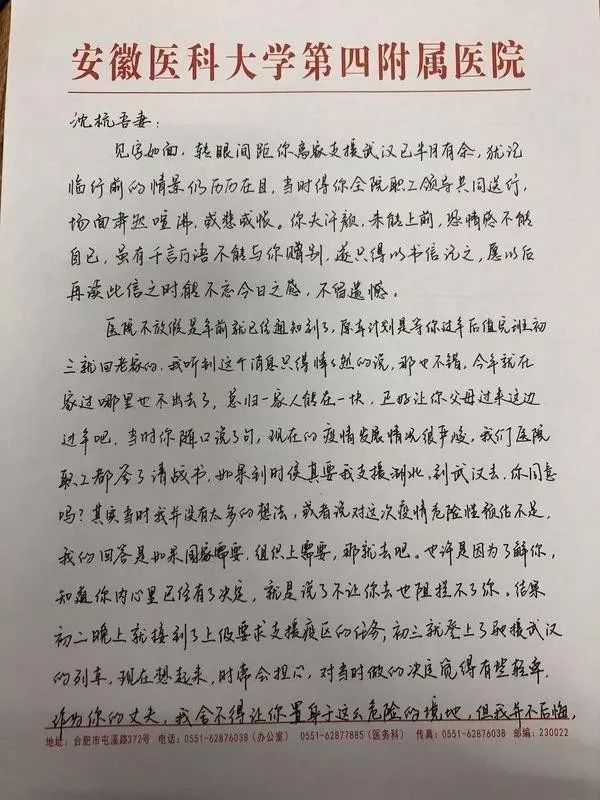 安徽医科大学第四附属医院
沈杭吾妻:
见字如面,转眼间距你离家支援武汉已半月有余,犹记
临行前的情景仍历历在目,当时得你全院职工领导共同送行,
场面肃然喧沸,或悲或恨。你夫汗颜,未能上前,恐情感不能
自已,虽有千言万语不能与你赠别,遂只得以书信记之,愿以后
再读此信之时能不忘今日之感,不留遗憾。
医院不放假是年前就已经通知到了,原本计划是等你过年后值完班初
三就回老家的,我听到这个消息只得悻悻然的说,那也不错,今年就在
家过哪里也不出去了,总归一家人能在一块,正好让你父母过来这边
过年吧,当时你随口说了句,现在的疫情发展情况很严峻,我们医院
职工都签了请战书,如果到时侯真要我支援湖北,到武汉去,你同意
吗?其实当时我并没有太多的想法,或者说对这次疫情危险性预估不足,
我的回答是如果国家需要,组织上需要,那就去吧。也许是因为了解你,
知道你内心里已经有了决定,就是说了不让你去也阻拦不了你。结果
初二晚上就接到了上级要求支援疫区的任务,初三就登上了驰援武汉
的列车,现在想起来,时常会担心,对当时做的决定觉得有些轻率,
作为你的丈夫,我舍不得让你置身于这么危险的境地,但我并不后悔,
地址:合肥市屯溪路372号 电话:0551-62876038(办公室) 0551-62877885(医务科) 传真:0551-62876038 邮编:230022